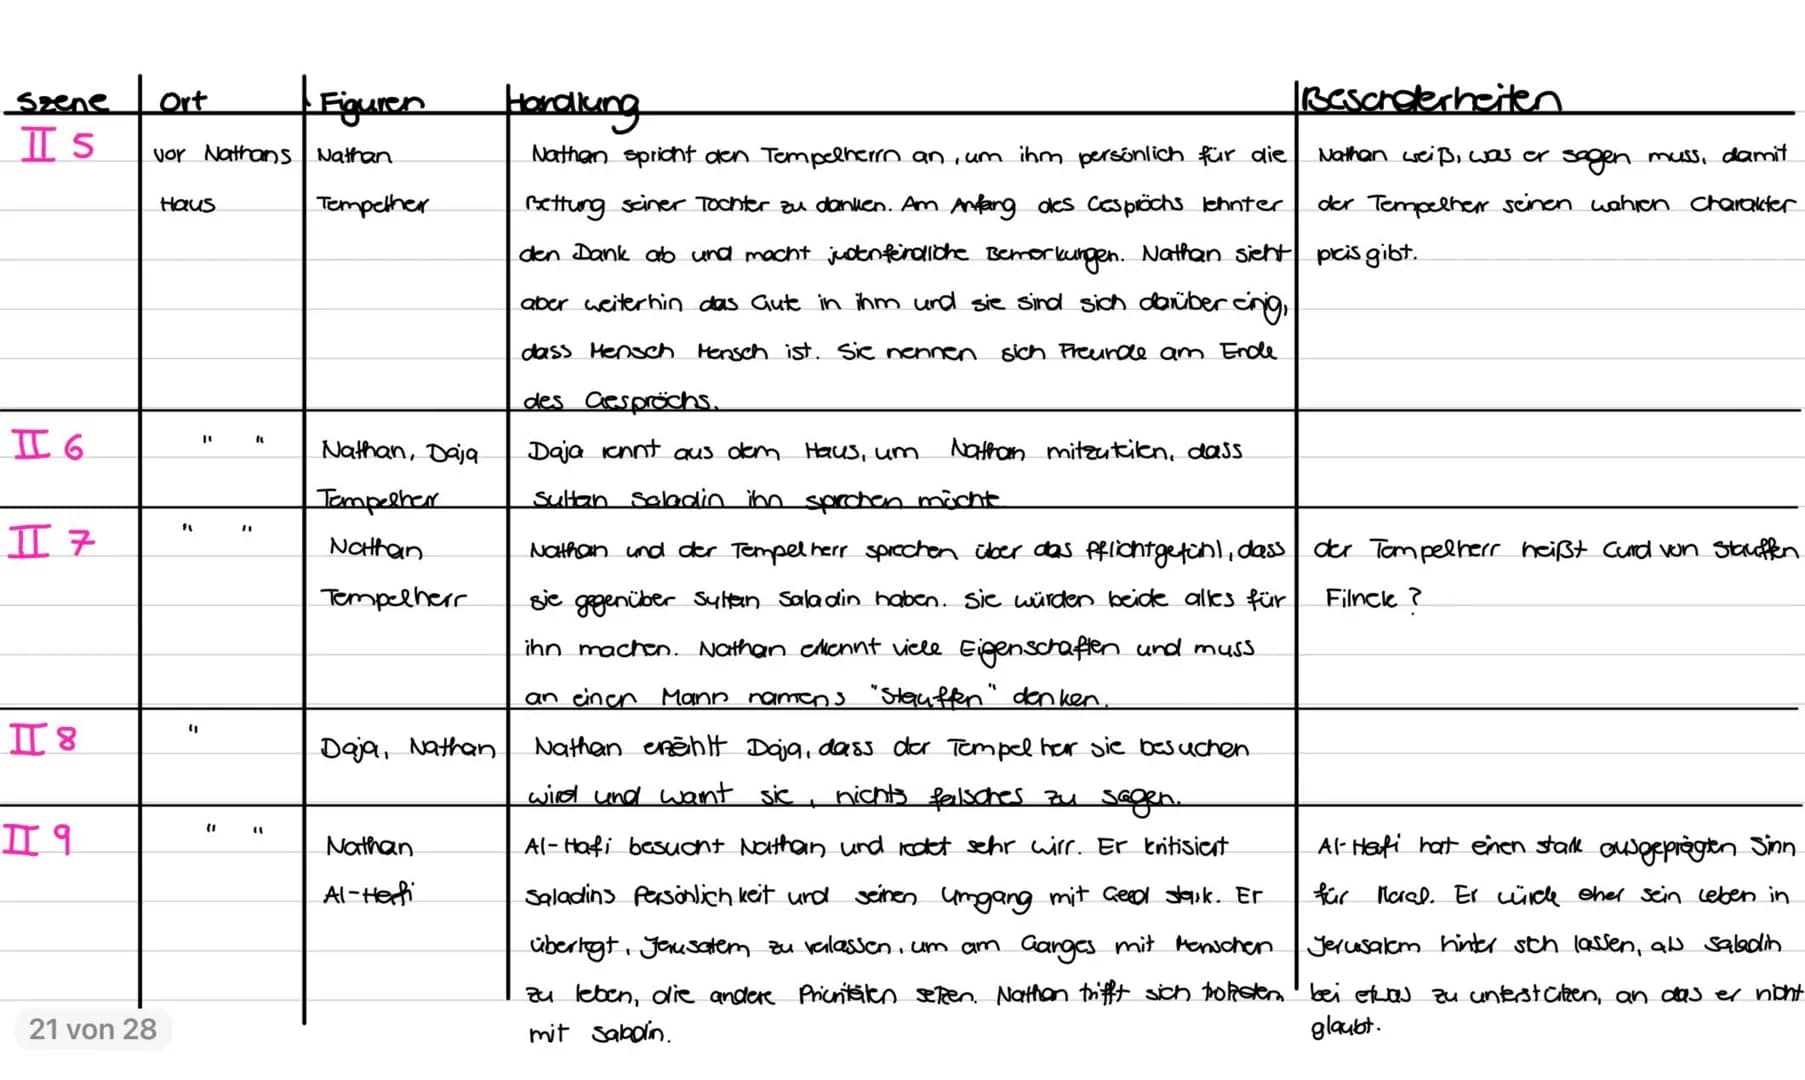 Szene Ort Figuren Handlung Besonderheiten
II 5
vor Nathans
Haus
Nathan
Tempelherr
Nathan spricht den Tempelherrn an, um ihm persönlich für die
Rettung seiner Tochter zu danken. Am Anfang des Gesprächs lehnter
den Dank ab und macht judenfeindliche Bemerkungen. Nathan sieht
aber weiterhin das Gute in ihm und sie sind sich darüber einig,
dass Mensch Mensch ist. Sie nennen sich Freunde am Ende
des Gesprächs.
Nathan weiß, was er sagen muss, damit
der Tempelherr seinen wahren Charakter
preis gibt.
II 6
" "
Nathan, Daja
Tempelherr
Daja rennt aus dem Haus, um Nathan mitzuteilen, dass
Sultan Saladin ihn sprechen möchte
II 7
" "
Nathan
Tempelherr
Nathan und der Tempelherr sprechen über das Pflichtgefühl, dass
sie gegenüber Sultan Saladin haben. Sie würden beide alles für
ihn machen. Nathan erkennt viele Eigenschaften und muss
an einen Mann namens "Stauffen" denken.
der Tempelherr heißt Curd von Stauffen
Filneck ?
II 8
"
Daja, Nathan
Nathan erzählt Daja, dass der Tempelherr sie besuchen
wird und warnt sie, nichts falsches zu sagen.
II 9
" "
Nathan
Al-Hafi
Al-Hafi besucht Nathan und redet sehr wirr. Er kritisiert
Saladins Persönlichkeit und seinen Umgang mit Geld stark. Er
überlegt, Jerusalem zu verlassen, um am Ganges mit Menschen
zu leben, die andere Prioritäten setzen. Nathan trifft sich trotzdem
mit Saladin.
Al-Hafi hat einen stark ausgeprägten Sinn
für Moral. Er würde eher sein Leben in
Jerusalem hinter sich lassen, als Saladin
bei etwas zu unterstützen, an das er nicht
glaubt.
21 von 28